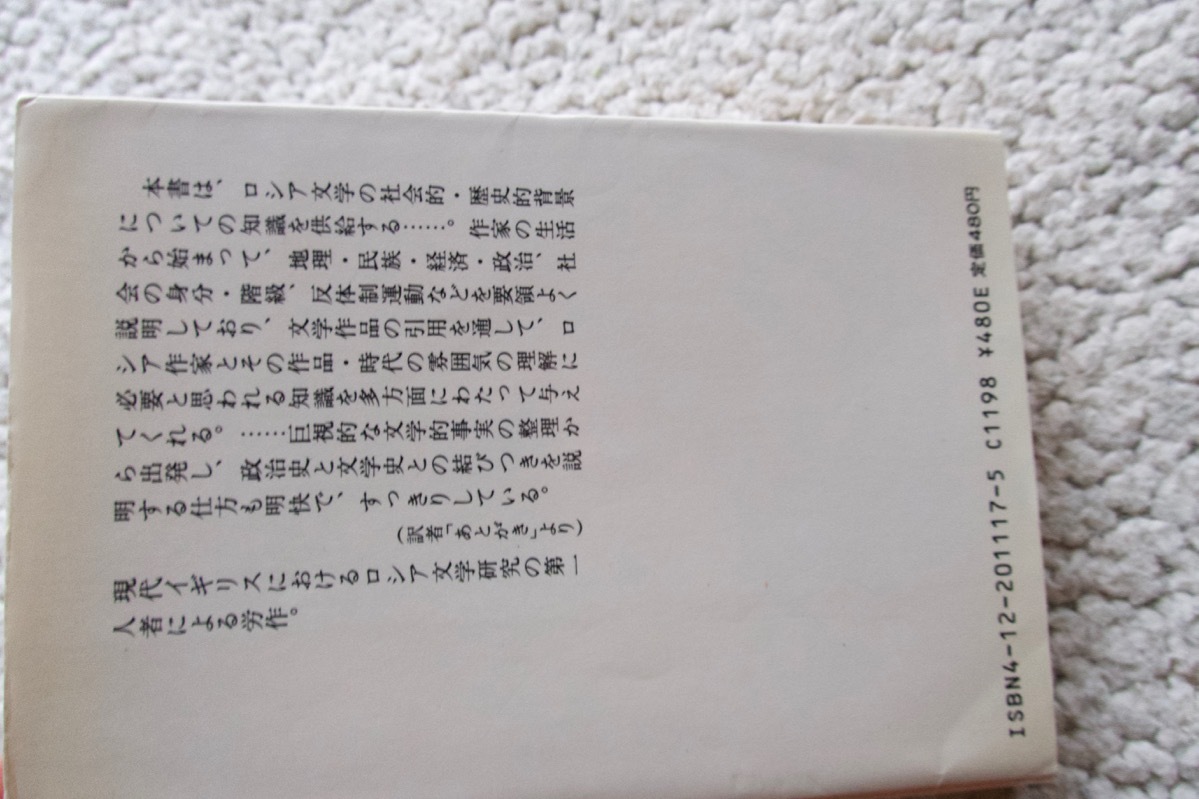 本書は、ロシア文学の社会的・歴史的背景
についての知識を供給する……。作家の生活
から始まって、地理・民族・経済・政治、社
会の身分・階級、反体制運動などを要領よく
説明しており、文学作品の引用を通して、ロ
シア作家とその作品・時代の雰囲気の理解に
必要と思われる知識を多方面にわたって与え
てくれる。……巨視的な文学的事実の整理か
ら出発し、政治史と文学史との結びつきを説
明する仕方も明快で、すっきりしている。
(訳者「あとがき」より)
現代イギリスにおけるロシア文学研究の第一
人者による労作。
ISBN4-12-201117-5 C1198 ¥480E 定価480円